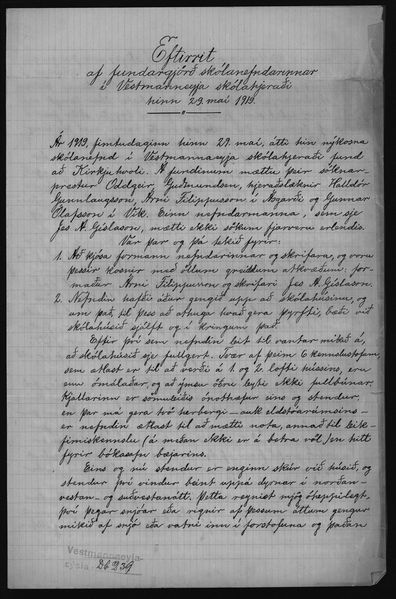 Eftirrit
af fundargjörð skólanefndarinnar
í Vestmannaeyja skólahjeraði
hinn 29. maí 1919.
Ár 1919, fimtudaginn hinn 29. maí, átti hin nýkosna
skólanefnd í Vestmannaeyja skólahjeraði fund
að Kirkjuhvoli. Á fundinum mættu þeir sóknar-
prestur Oddgeir Guðmundsen, hjeraðslæknir Halldór
Gunnlaugsson, Árni Filippusson í Ásgarði og Gunnar
Ólafsson í Vík. Einn nefndarmanna, sem sje
Jes A. Gíslason, mætti ekki sökum fjarveru erlendis.
Var þar og þá tekið fyrir:
1. Að kjósa formann nefndarinnar og skrifara, og voru
þessir kosnir með öllum greiddum atkvæðum: for-
maður Árni Filippusson og skrifari Jes A. Gíslason.
2. Nefndin hafði áður gengið upp að skólahúsinu, og
um það, til þess að athuga hvað gera þyrfti, bæði við
skólahúsið sjálft og í kringum það.
Eftir því sem nefndin leit til vantar mikið á,
að skólahúsið sje fullgert. Tvær af þeim 6 kennslustofum,
sem ætlast er til að verði á 1. og 2. lofti hússins, eru
enn ómálaðar, og að ýmsu öðru leyti ekki fullbúnar.
Kjallarinn er sömuleiðis ónothæfur eins og stendur,
en þar má gera tvö herbergi - auk eldstóarúmsins -
er nefndin ætlast til að mætti nota, annað til leik-
fimiskennslu (á meðan ekki er á betra völ) en hitt
fyrir bókasafn bæjarins.
Eins og nú stendur er enginn skúr við húsið, og
stendur því vindur beint uppá dyrnar í norðan-
vestan- og suðvestanátt. Þetta reynist mjög óheppilegt,
því þegar snjóar eða rignir af þessum áttum gengur
mikið af snjó eða vatni inn í forstofuna og þaðan
Vestmannaeyja-
sýsla